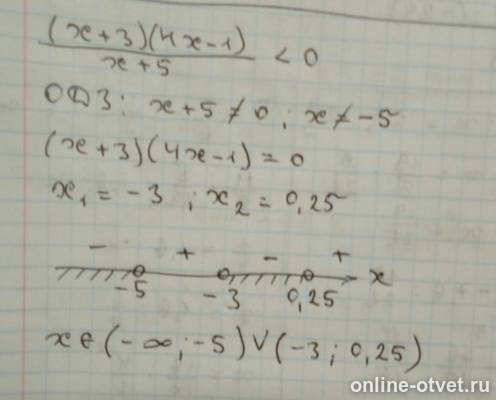 (x+3)(4x-1)
x+5 < 0
ОДЗ: x+5≠0; x≠-5
(x+3)(4x-1)=0
x₁=-3 ; x₂=0,25
- + - +
-5 -3 0,25 x
x∈(-∞;-5)∨(-3;0,25)
online-otvet.ru